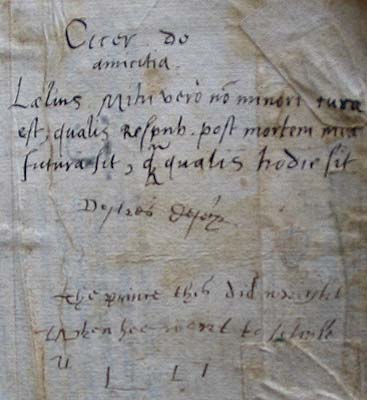 Cicer de
amicitia.
Lælius Mihi verò nõ minori cura
est, qualis Respub. post mortem mea
futura sit, q̃ qualis hodie sit
the prince this did wright
When hee went to schoole